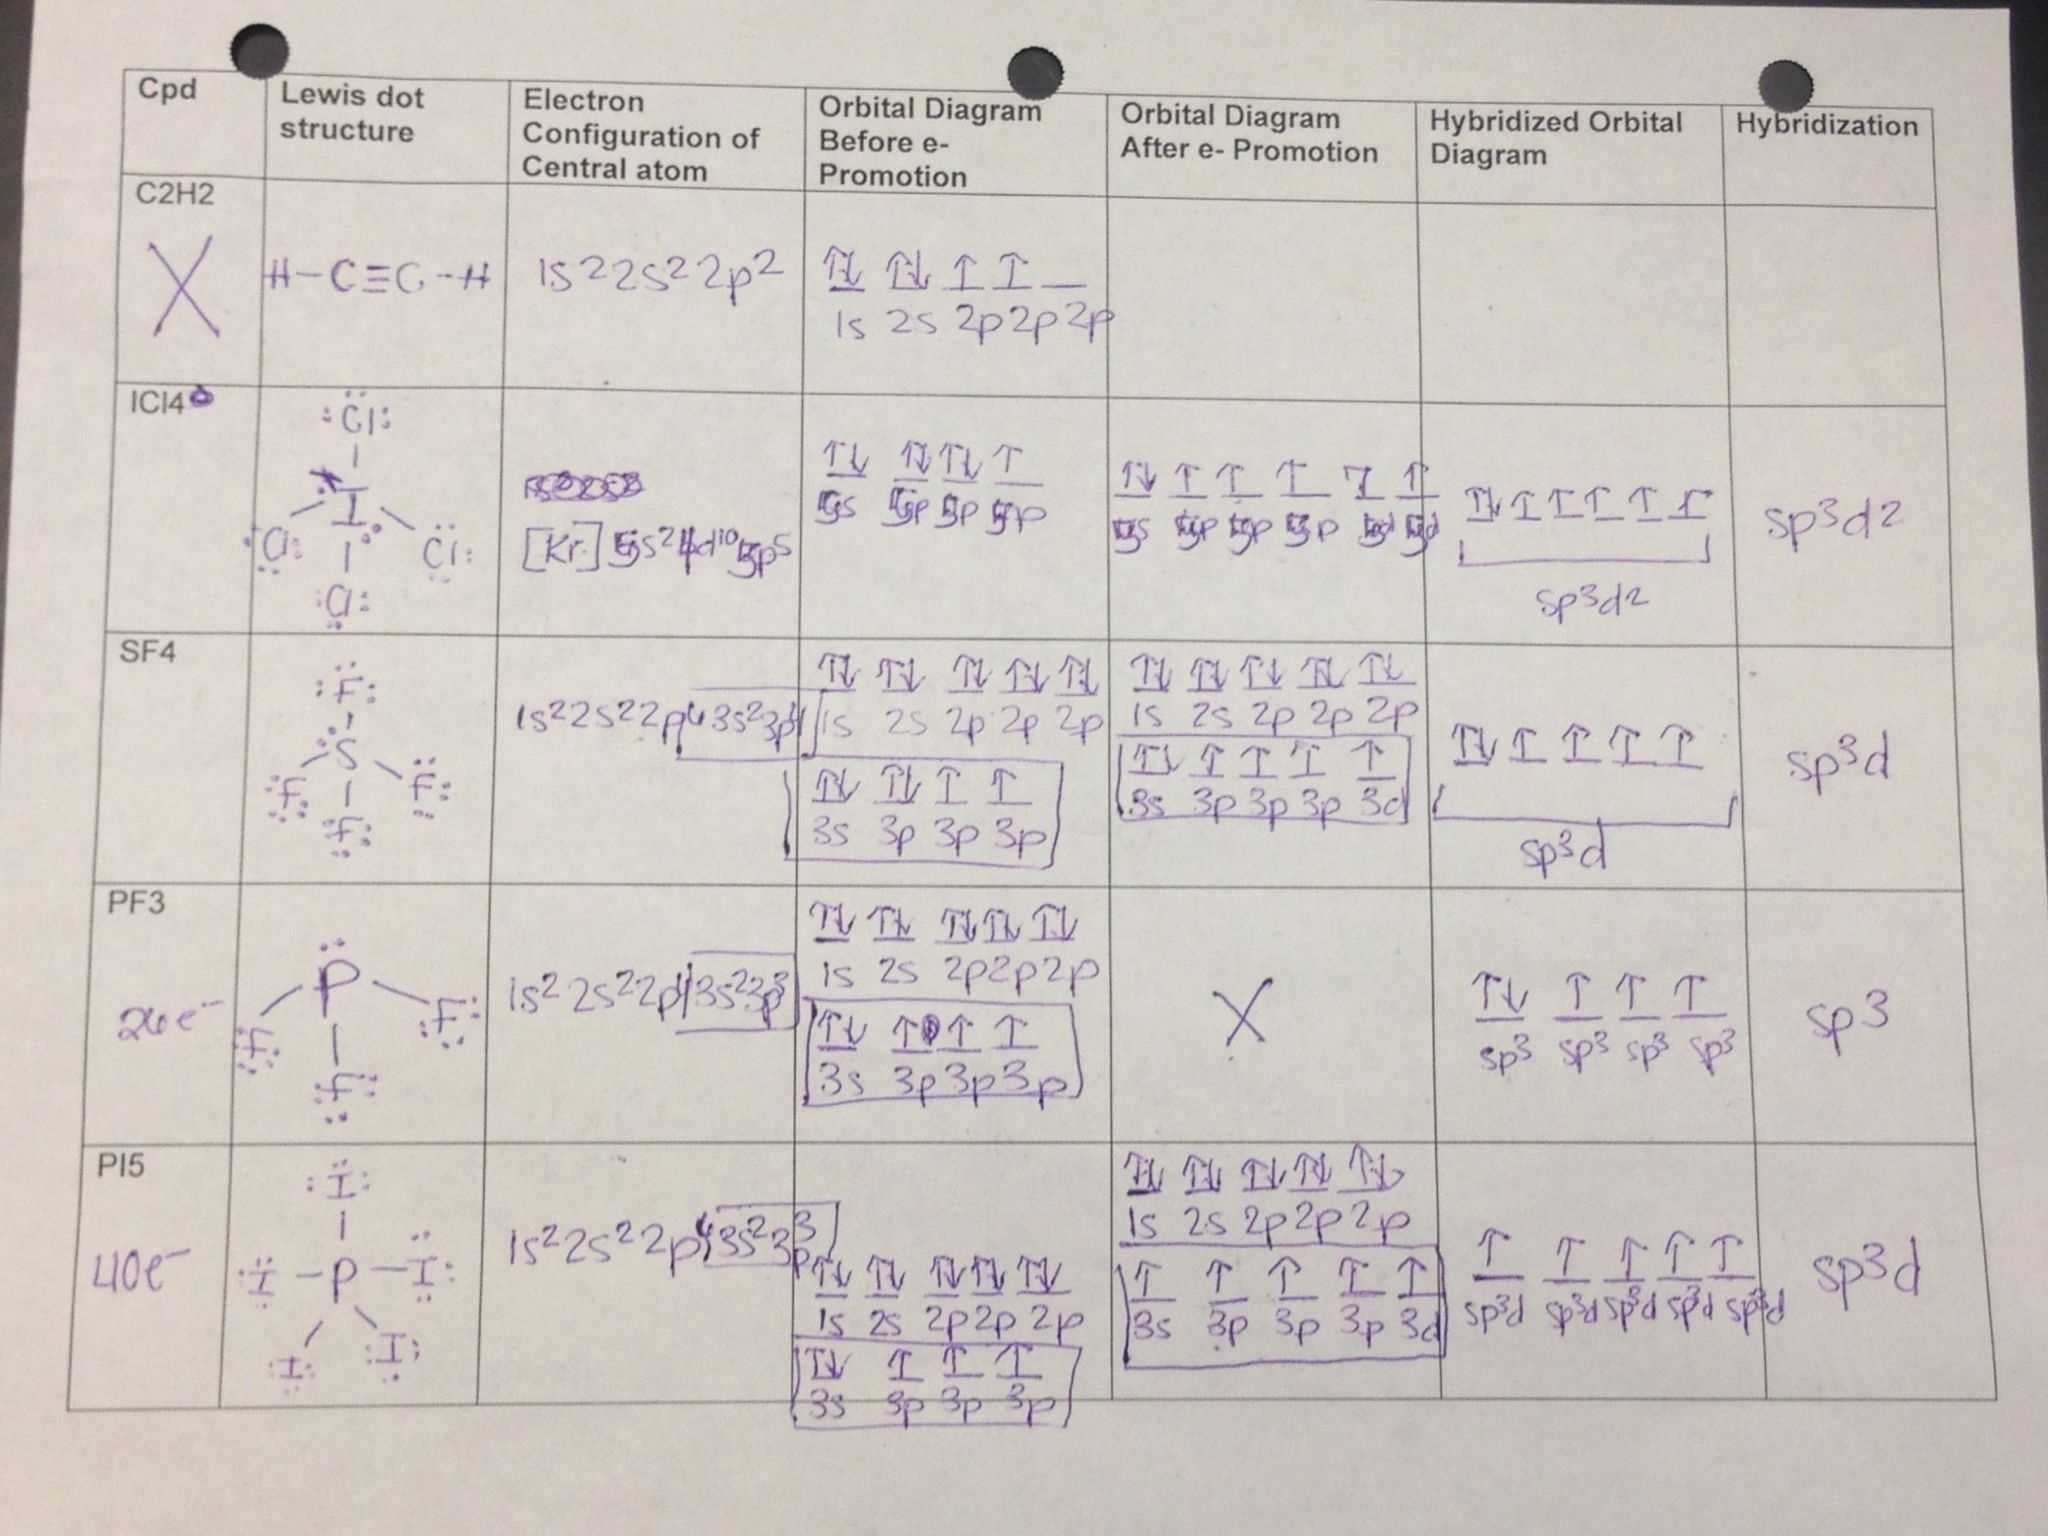 Cpd
Lewis dot
structure
Electron
Configuration of
Central atom
Orbital Diagram
Before e-
Promotion
Orbital Diagram
After e- Promotion
Hybridized Orbital
Diagram
Hybridization
C2H2
H-C≡C-H
1s²2s²2p²
↑↓ ↑↓ ↑ ↑
1s 2s 2p 2p 2p
ICl4
:Cl:
Cl I Cl:
:Cl:
[Kr]5s²4d¹⁰5p⁵
↑↓ ↑↓ ↑↓ ↑
5s 5p 5p 5p
↑↓ ↑ ↑ ↑ ↑ ↑
5s 5p 5p 5p 5d 5d
↑↓ ↑ ↑ ↑ ↑ ↑
sp3d2
sp3d2
SF4
:F:
S
:F: :F:
:F:
1s²2s²2p⁴3s²3p⁴
↑↓ ↑↓ ↑↓ ↑↓ ↑↓
1s 2s 2p 2p 2p
↑↓ ↑↓ ↑ ↑
3s 3p 3p 3p
↑↓ ↑↓ ↑↓ ↑↓ ↑↓
1s 2s 2p 2p 2p
↑↓ ↑ ↑ ↑ ↑
3s 3p 3p 3p 3d
↑↓ ↑ ↑ ↑ ↑
sp³d
sp³d
PF3
26e⁻
P
:F: :F:
:F:
1s²2s²2p⁴3s²3p³
↑↓ ↑↓ ↑↓ ↑↓ ↑↓
1s 2s 2p 2p 2p
↑↓ ↑ ↑ ↑
3s 3p 3p 3p
X
↑↓ ↑ ↑ ↑
sp³ sp³ sp³ sp³
sp3
PI5
40e⁻
:I:
:I-P-I:
:I: :I:
1s²2s²2p⁴3s²3p³
↑↓ ↑↓ ↑↓ ↑↓ ↑↓
1s 2s 2p 2p 2p
↑↓ ↑ ↑ ↑
3s 3p 3p 3p
↑↓ ↑↓ ↑↓ ↑↓ ↑↓
1s 2s 2p 2p 2p
↑ ↑ ↑ ↑ ↑
3s 3p 3p 3p 3d
↑ ↑ ↑ ↑ ↑
sp³d sp³d sp³d sp³d sp³d
sp3d